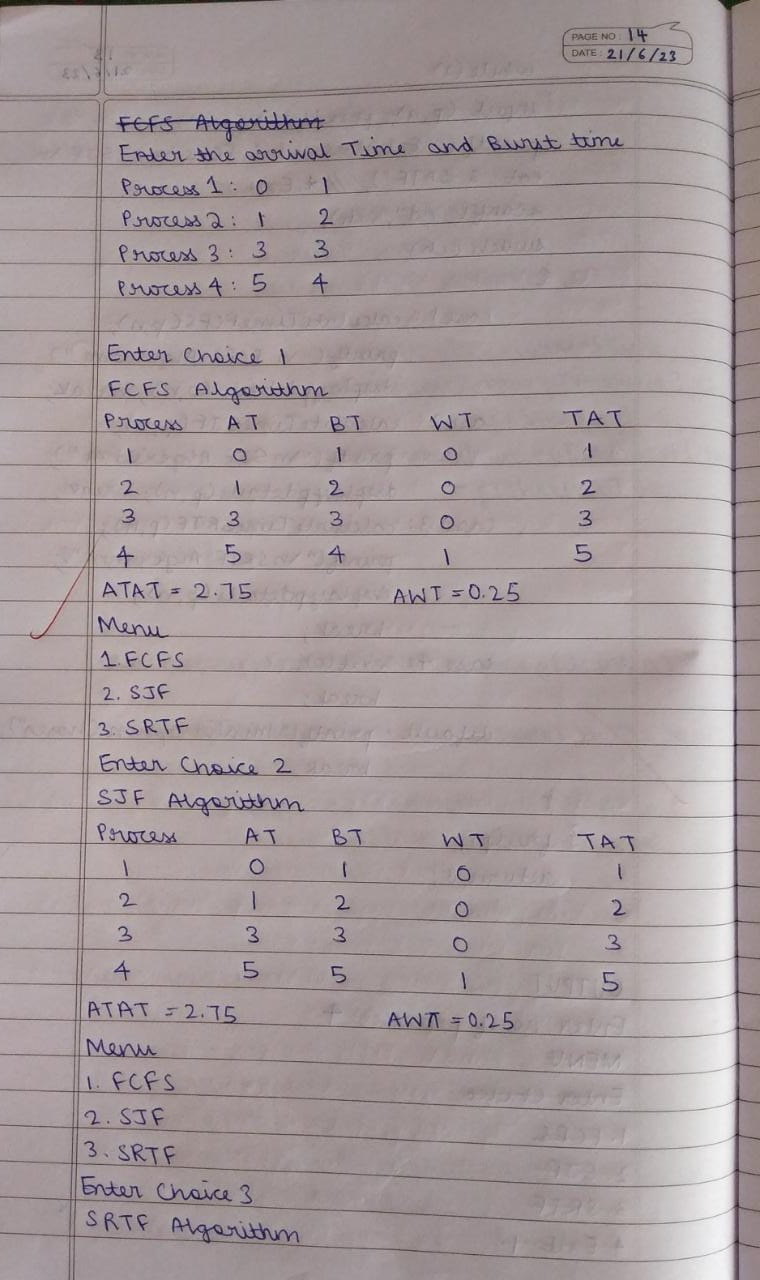 PAGE NO: 14
DATE: 21/6/23
FCFS Algorithm
Enter the arrival Time and Burst time
Process 1: 0 1
Process 2: 1 2
Process 3: 3 3
Process 4: 5 4
Enter Choice 1
FCFS Algorithm
Process AT BT WT TAT
1 0 1 0 1
2 1 2 0 2
3 3 3 0 3
4 5 4 1 5
ATAT = 2.75 AWT = 0.25
Menu
1. FCFS
2. SJF
3. SRTF
Enter Choice 2
SJF Algorithm
Process AT BT WT TAT
1 0 1 0 1
2 1 2 0 2
3 3 3 0 3
4 5 5 1 5
ATAT = 2.75 AWT = 0.25
Menu
1. FCFS
2. SJF
3. SRTF
Enter Choice 3
SRTF Algorithm